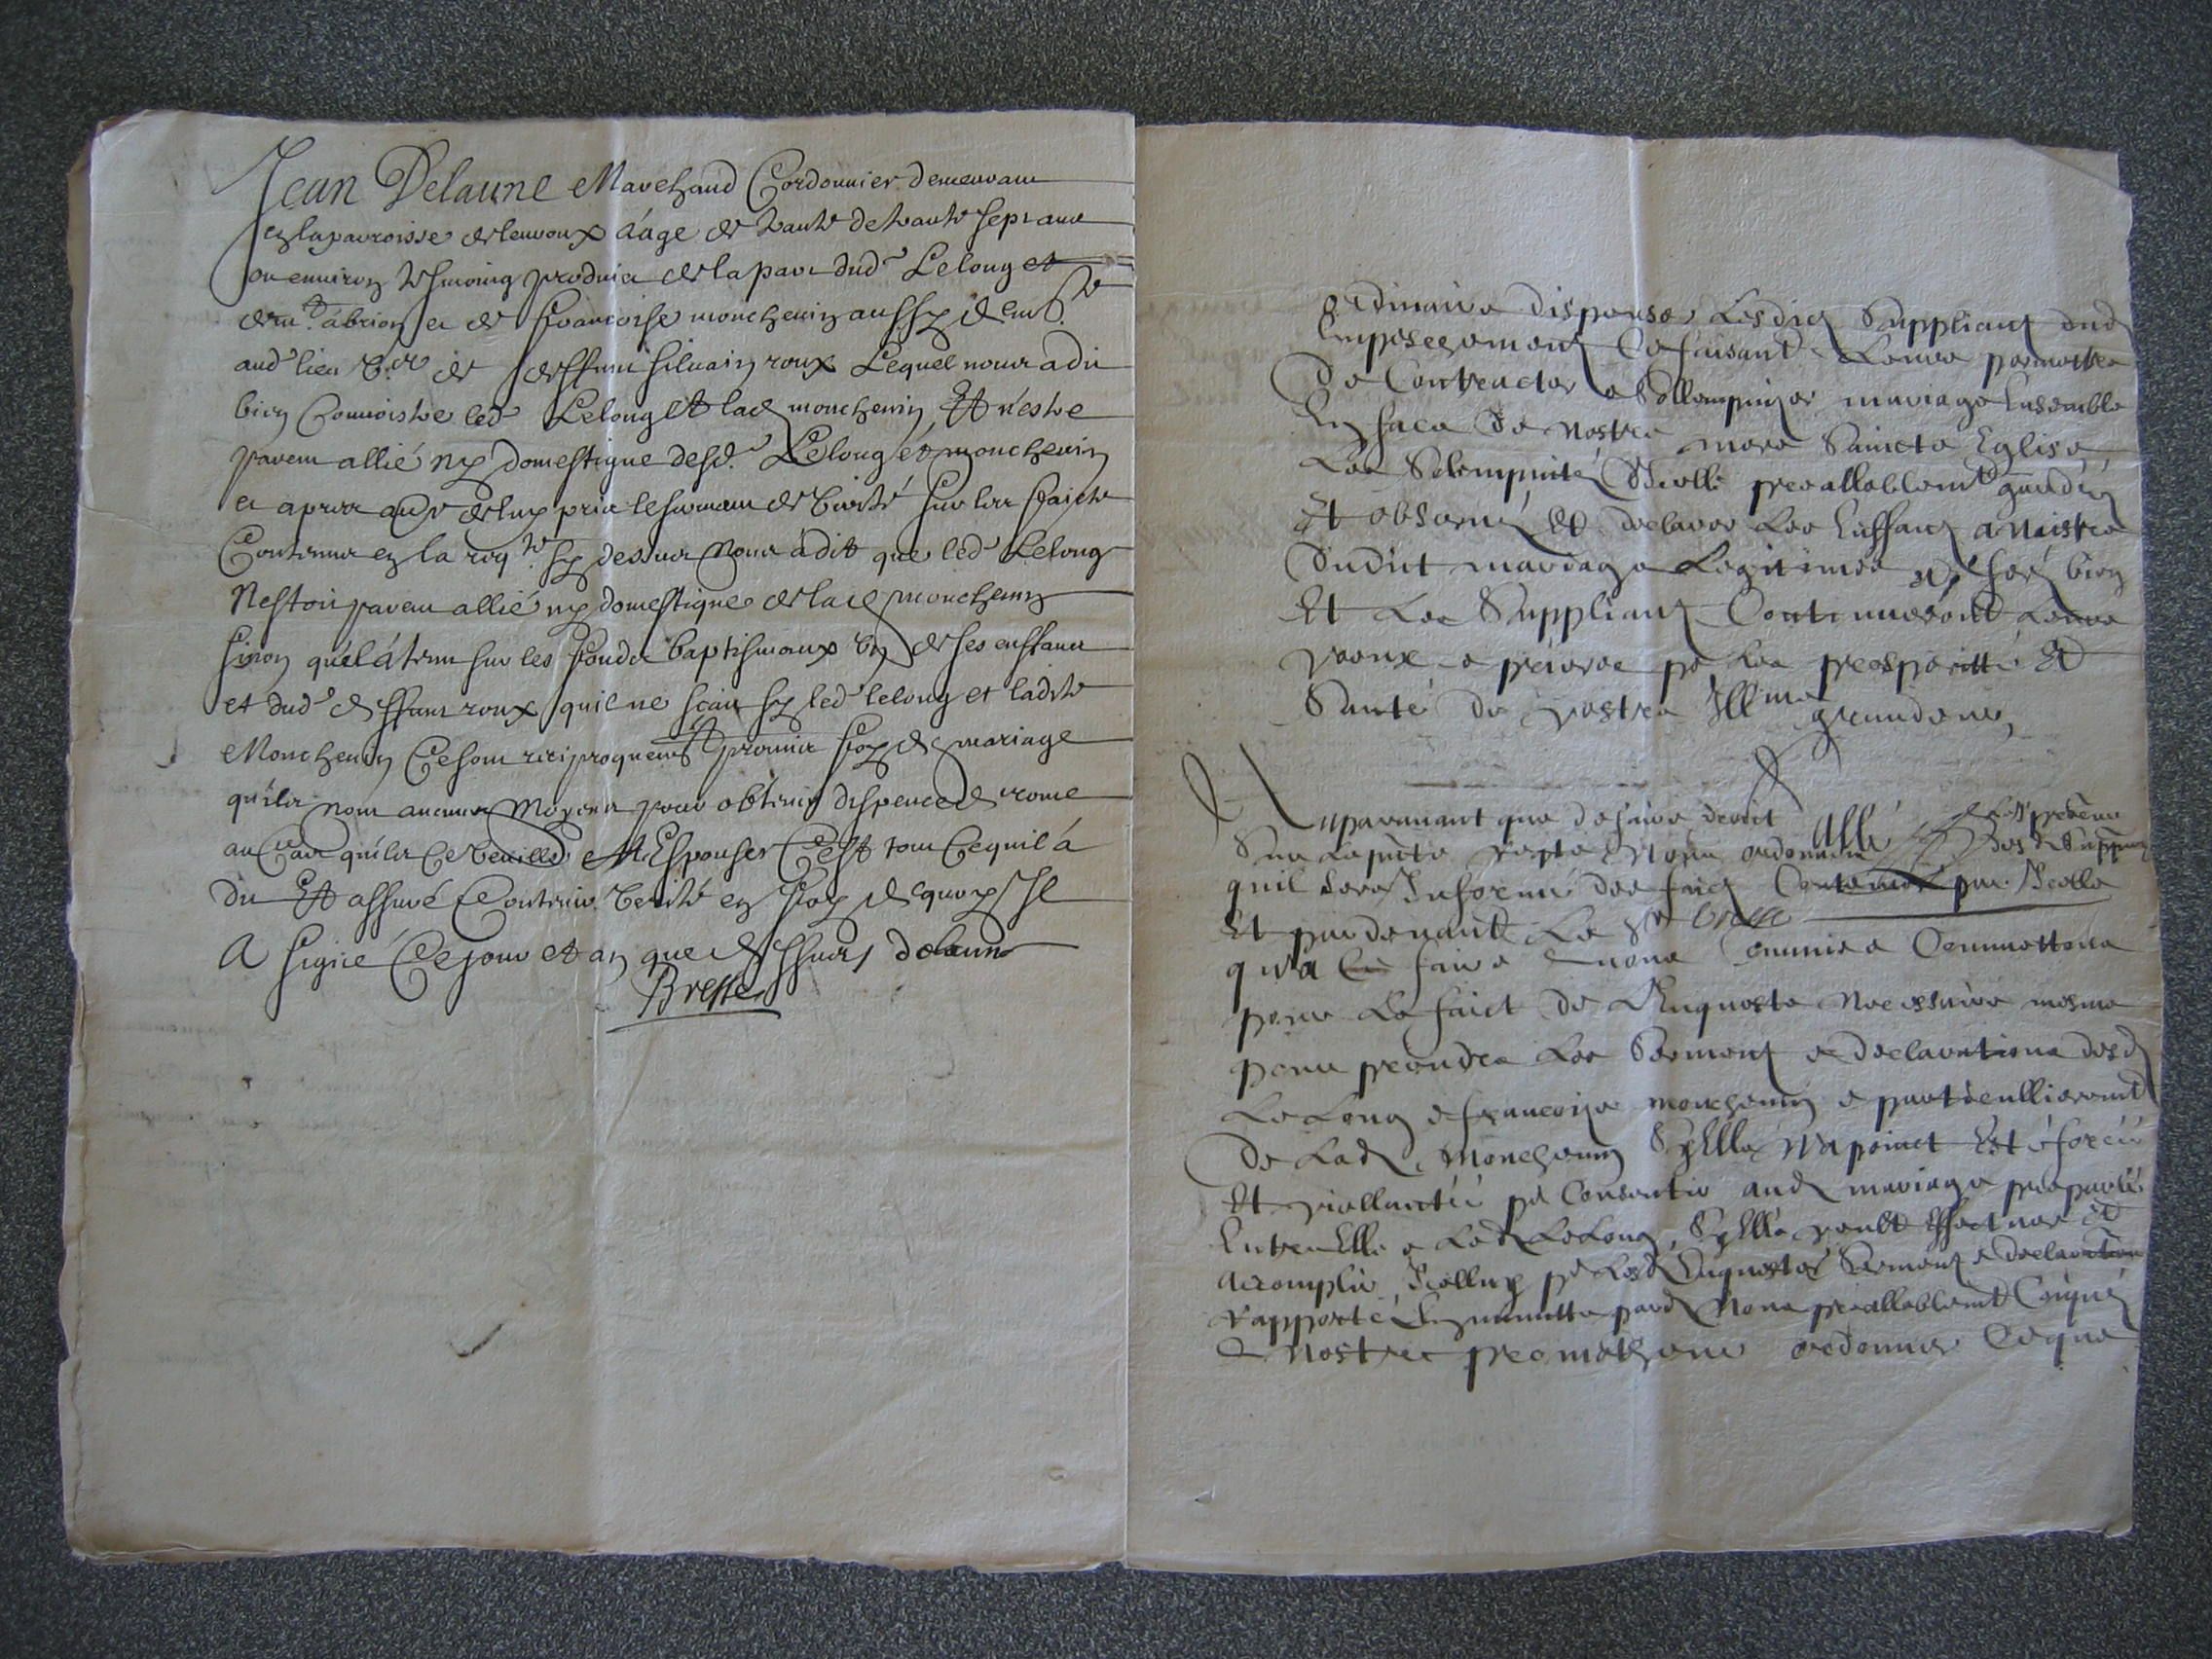 Jean Delaune Marchand Cordonnier demeurant
en la parroisse de leuroux aage de trante sept ans
ou environ tesmoing produict de la part dud Lelong et
abrion et de francoise moncheninz aussy demte
aud lieu vve de deffunt silvain roux Lequel nous a dit
bien Connoistre led Lelong Et lad monchenin Et n'estre
parent allié ny domestique desd. Lelong et monchenin
et apres avoir de luy pris le serment de verité sur les faicts
Contenus en la reqte sy dessus Nous a dit que led Lelong
N'estoit parent allié ny domestique de lad monchenin
sinon qu'el a tenu sur les fonds baptismaux un de ses enffans
et dud deffunt roux qu'il ne scait sy led lelong et ladite
Monchenin Ce sont reciproquemt promis foy de mariage
qu'ils n'ont aucuns Moyens pour obtenir dispence de rome
au Cas qu'ils Ce veuille Espouser C'est tout Ce quil á
dit Et assuré Contenir verité en foy de quoy Il
A signé Ce jour et an que dessus delaune
Bresse
ordinaire dispenser Lesdicts Suppliants dud
Empeschement Ce faisant Leurs permettre
De Contracter & Sollempnizer mariage Ensemble
En face de Nostre mere Saincte Eglise
Les Solempnités Dicelle preallablemt gardées
Et observées Et declarer Les Enffans a Naistre
Dudict mariage Legitimes
Et Les Suppliants Continueront Leurs
voeux & prieres pr La prosperitté Et
Santé de vostre Illme grandeur
Auparavant que de faire droict
Sur La presente reqte Nous ordonnons
quil sera Informé des faicts Contenus par Icelle
Et pardevant Le Sr Bresse
qu'a Ce faire Avons Commis & Commettons
pour Le faict de L'Enqueste Necessaire mesme
pour prendre Les Serments & declarations desd
Le Long & francoise monchenin & particullieremt
De Lad Monchenin Sy Elle N'a poinct Esté forcée
Et viollantée pr Consentir aud mariage proparlé
Entre Elle & Led LeLong, Sy Elle veult Effectuer Et
accomplir Icelluy pr Lesd Enquestes Serments & declarations
rapportés En minutte pard Nous preallablemt Comuniqués
A Nostre promotheur ordonner Ce que